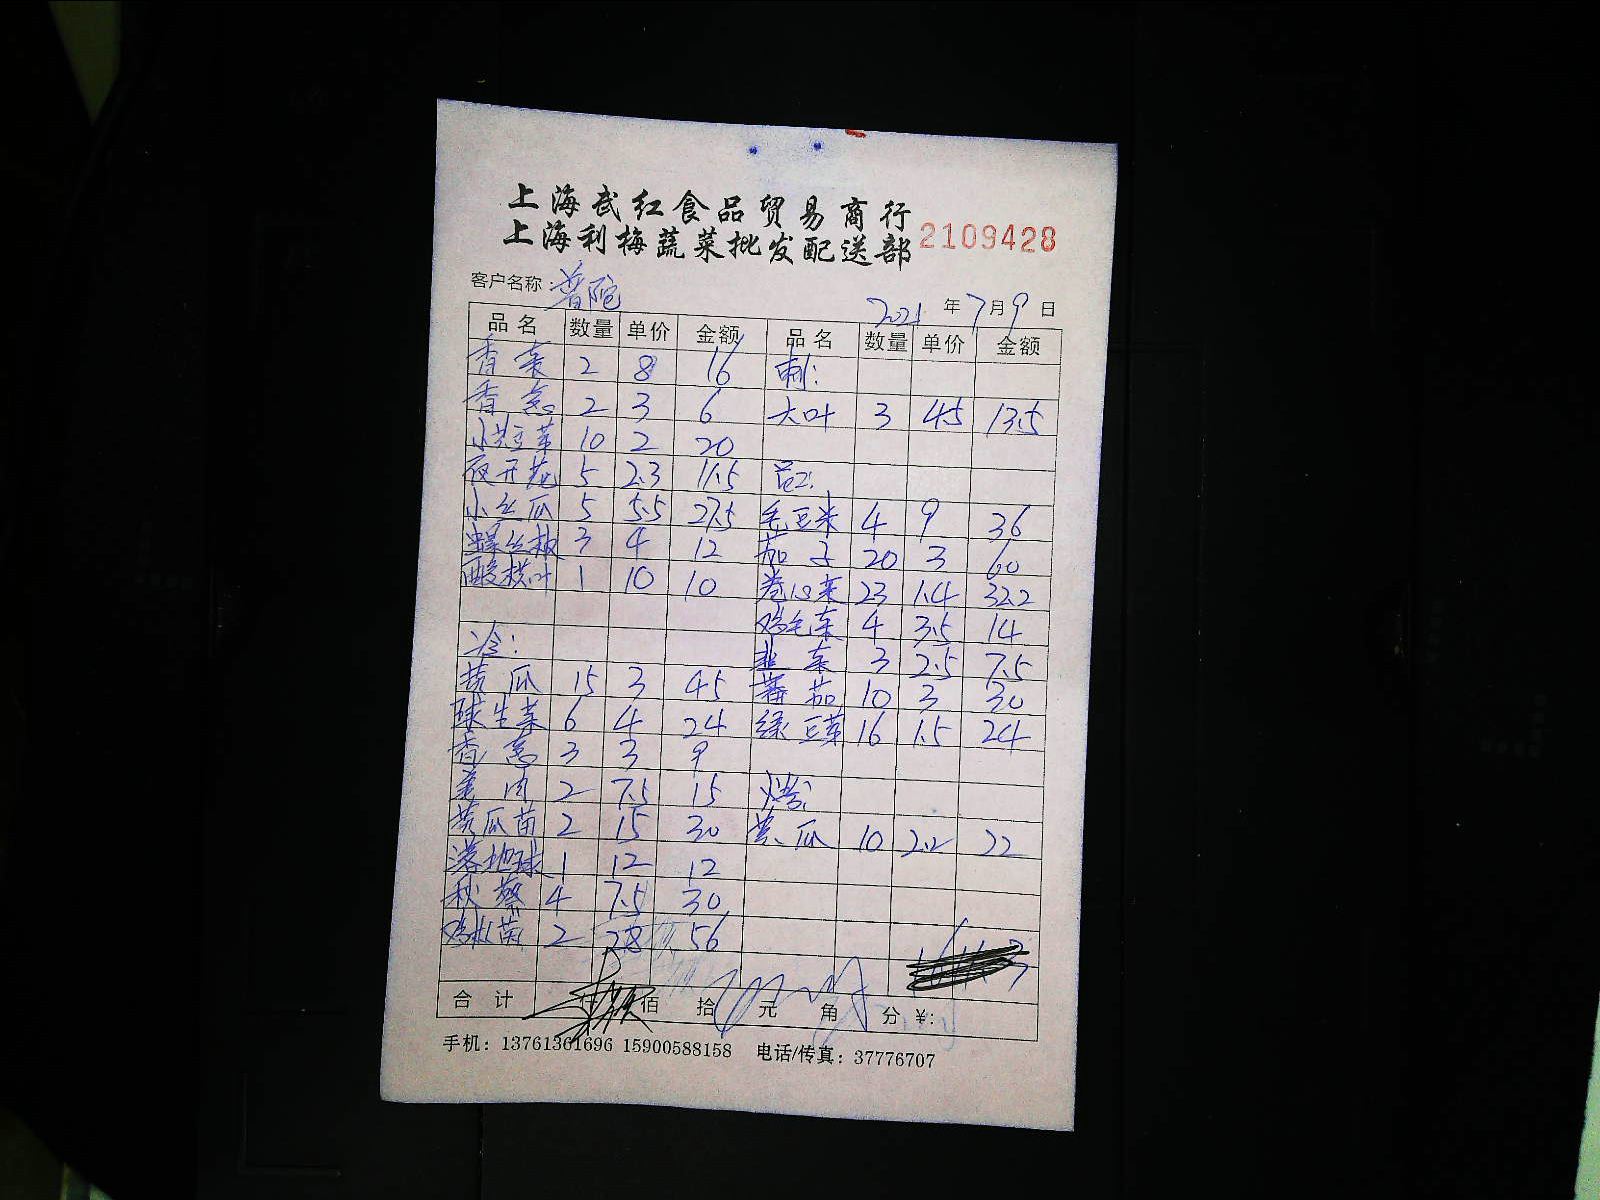 上海武红食品贸易商行
上海利梅蔬菜批发配送部 2109428
客户名称: 普陀
2021 年 7 月 9 日
品名 数量 单价 金额 品名 数量 单价 金额
香菜 2 8 16
香葱 2 3 6 大叶 3 4.5 13.5
小豆芽 10 2 20
夜开花 5 2.3 11.5
小丝瓜 5 5.5 27.5 毛豆米 4 9 36
螺丝椒 3 4 12 茄子 20 3 60
酸模叶 1 10 10 卷心菜 23 1.4 32.2
鸡毛菜 4 3.5 14
冷: 韭菜 3 2.5 7.5
黄瓜 15 3 45 蕃茄 10 3 30
球生菜 6 4 24 绿豆芽 16 1.5 24
香葱 3 3 9
姜肉 2 7.5 15
黄瓜苗 2 15 30 黄瓜 10 2.2 22
落地球 1 12 12
秋葵 4 7.5 30
鸡枞菌 2 28 56
合计 仟 佰 拾 元 角 分 ¥:
手机: 13761361696 15900588158 电话/传真: 37776707